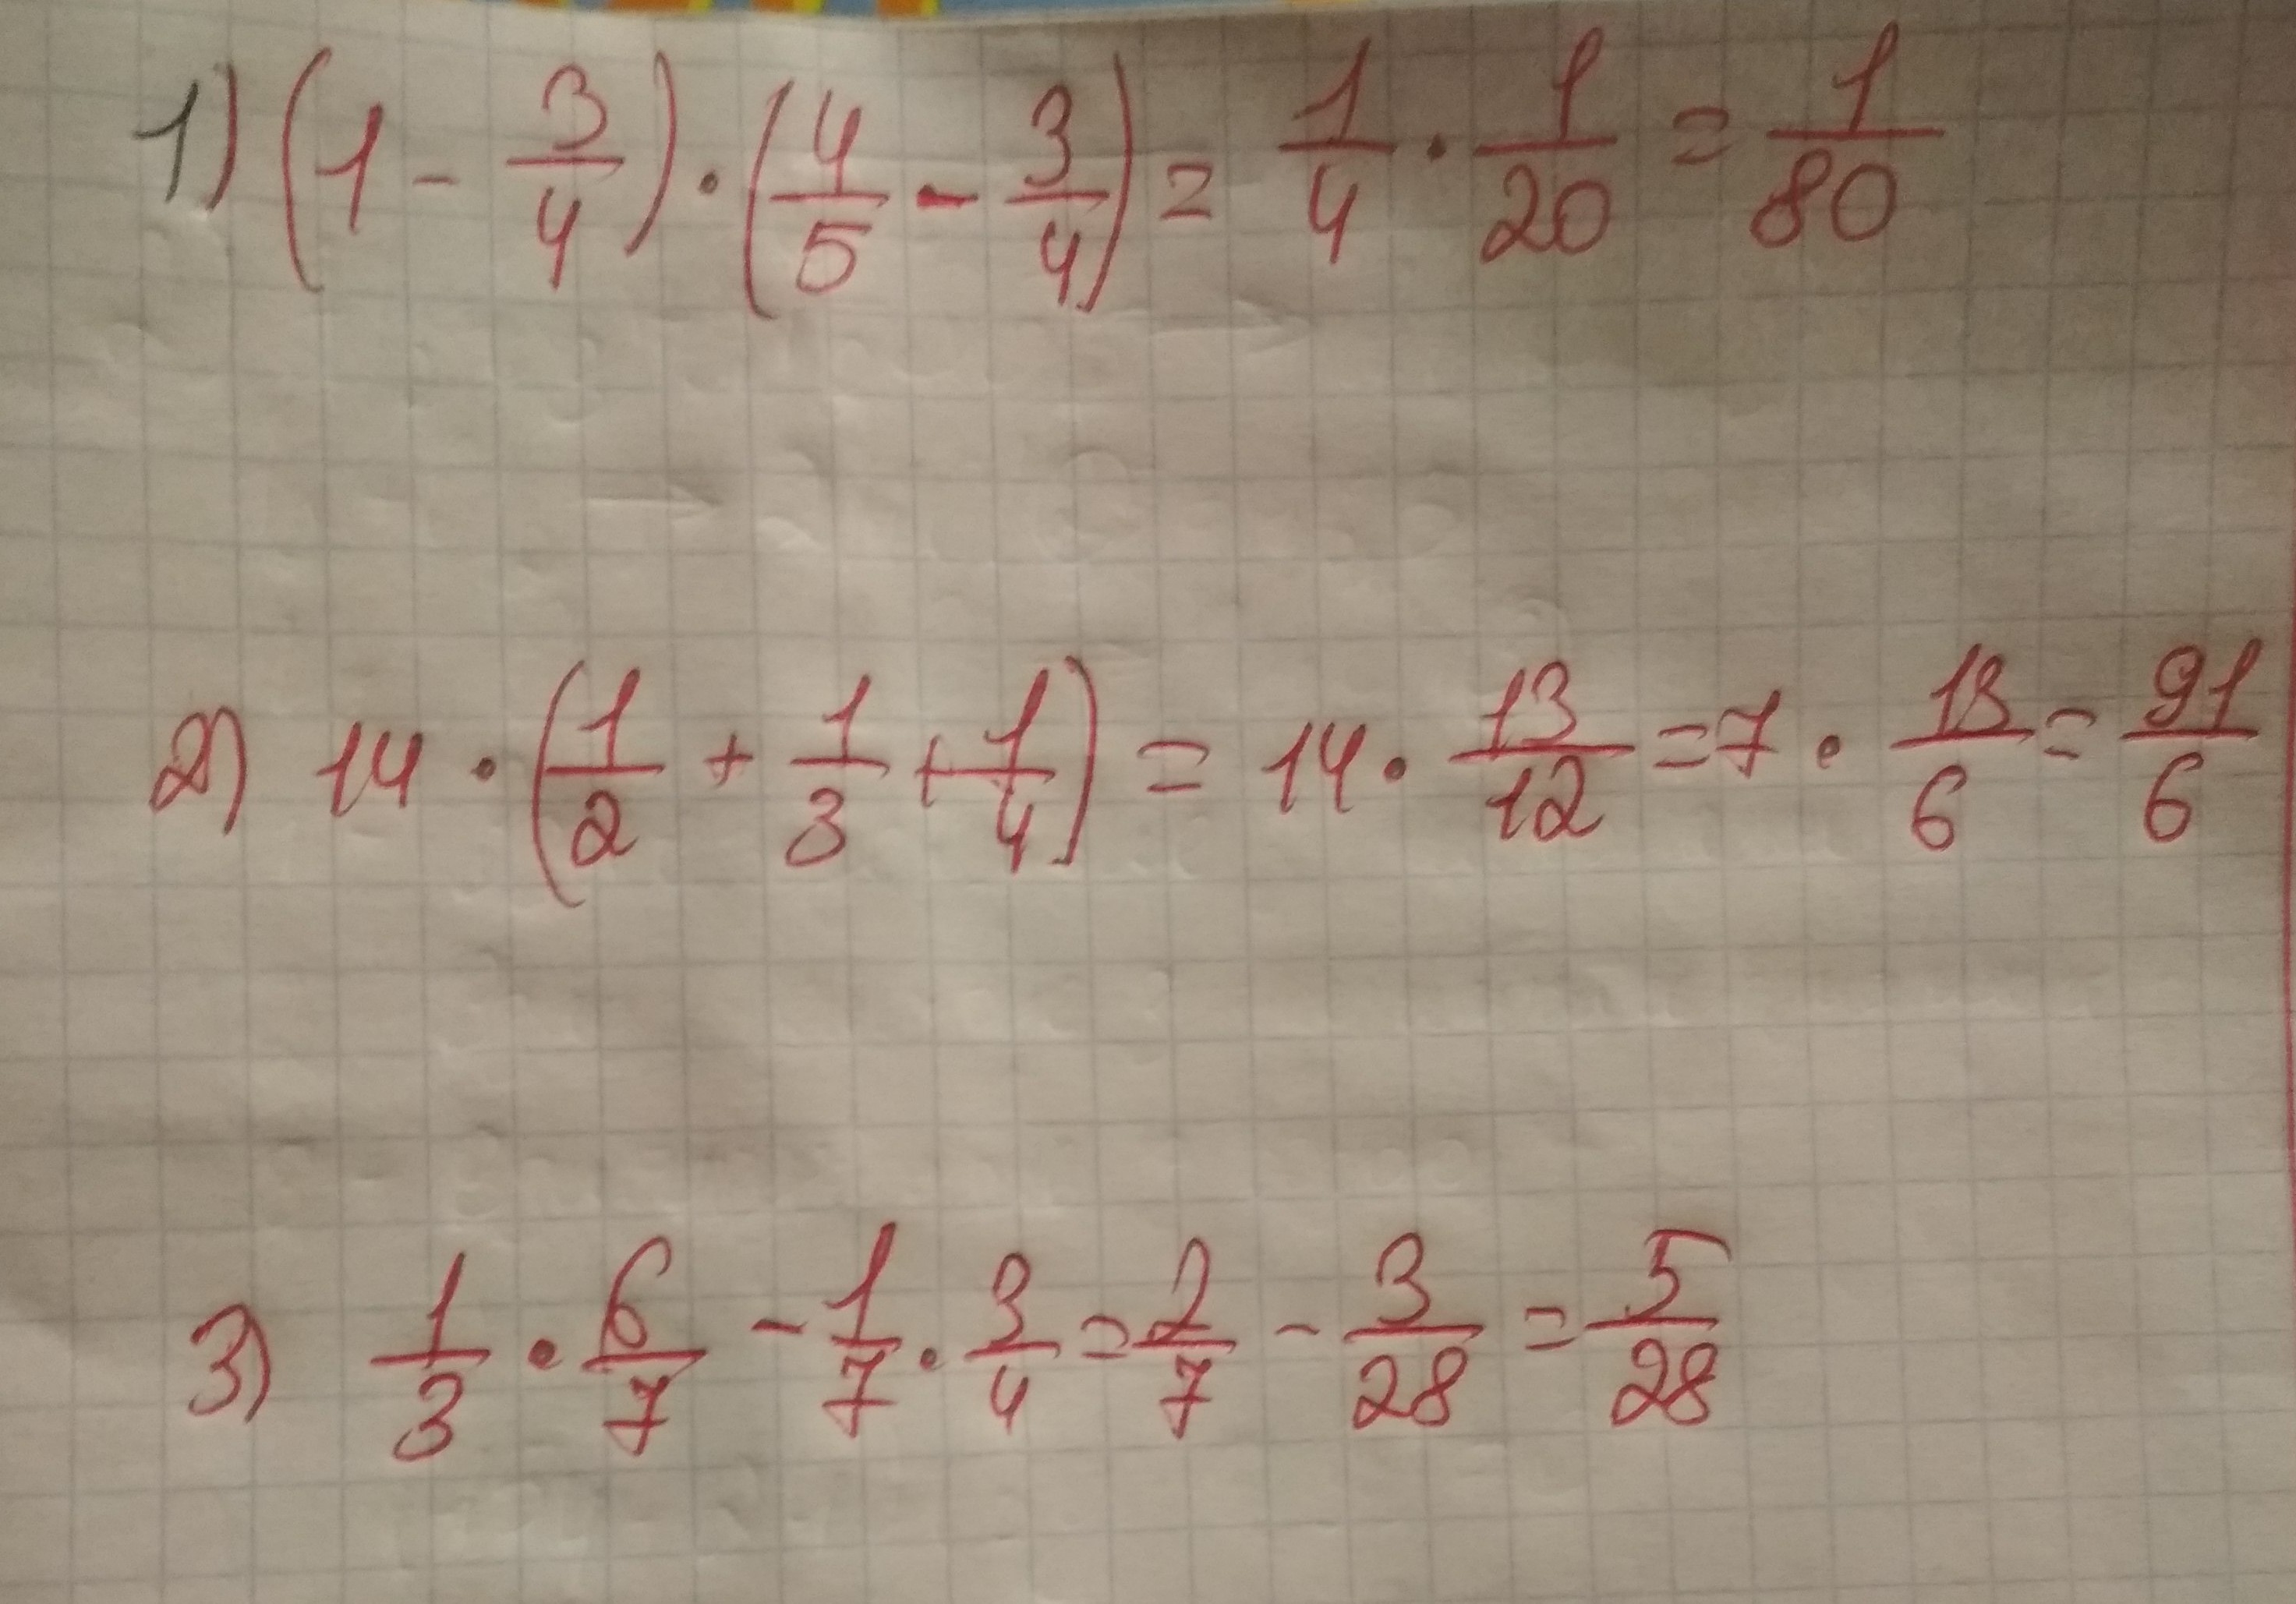 1) (1 - 3/4) · (4/5 - 3/4) = 1/4 · 1/20 = 1/80
2) 14 · (1/2 + 1/3 + 1/4) = 14 · 13/12 = 7 · 13/6 = 91/6
3) 1/3 · 6/7 - 1/7 · 3/4 = 2/7 - 3/28 = 5/28